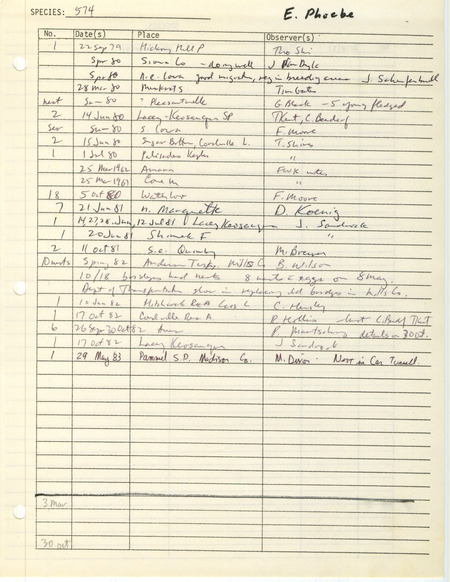 SPECIES: 574 E. Phoebe
No. Date(s) Place Observer(s)
1 22 Sep 79 Hickory Hill P Tho Shi
Spr 80 Sioux Co - doing well J Van Dyk
Spr 80 n.e. Iowa good migration, in breeding areas J. Schaufenbuel
28 mar 80 Tim Gates
nest Su-80 " Pleasantville G Black - 5 young fledged
2 14 Jun 80 Lacey-Keosauqua SP TKent, C. Bendorf
Sev Su-80 S. Iowa F. Moore
2 15 Jun 80 Sugar Bottom, Coralville L. T. Shires
1 1 Jul 80 Palisades Kepler "
25 Mar 1962 Amana FWK notes
25 Mar 1967 Cone M "
18 5 Oct 80 Waterloo F. Moore
7 21 Jun 81 n. Marquette D. Koenig
1 14,27,28 Jun, 12 Jul 81 Lacey Keosauqua J. Sandrock
1 20 Jun 81 Shimek F. "
2 11 Oct 81 s.e. Quimby M. Brewer
10 nests Spring 82 Anderson Twsp. Mills C B. Wilson
10/18 bridges had nests 8 nests c eggs on 8 May
Dept of Transportation slow in replacing old bridges in Mills Co.
1 10 Jun 82 Hitchcock Rec A Cass C C. Hensley
1 17 Oct 82 Coralville Res A. P Hollis
6 26 Sep 30 Oct 82 Ames P. Martsching details on 30 Oct.
1 17 Oct 82 Lacey Keosauqua J Sandrock
1 29 May 83 Pammel S.P. Madison Co. M. Dixon - Nest in Car Tunnel
3 Mar
30 Oct